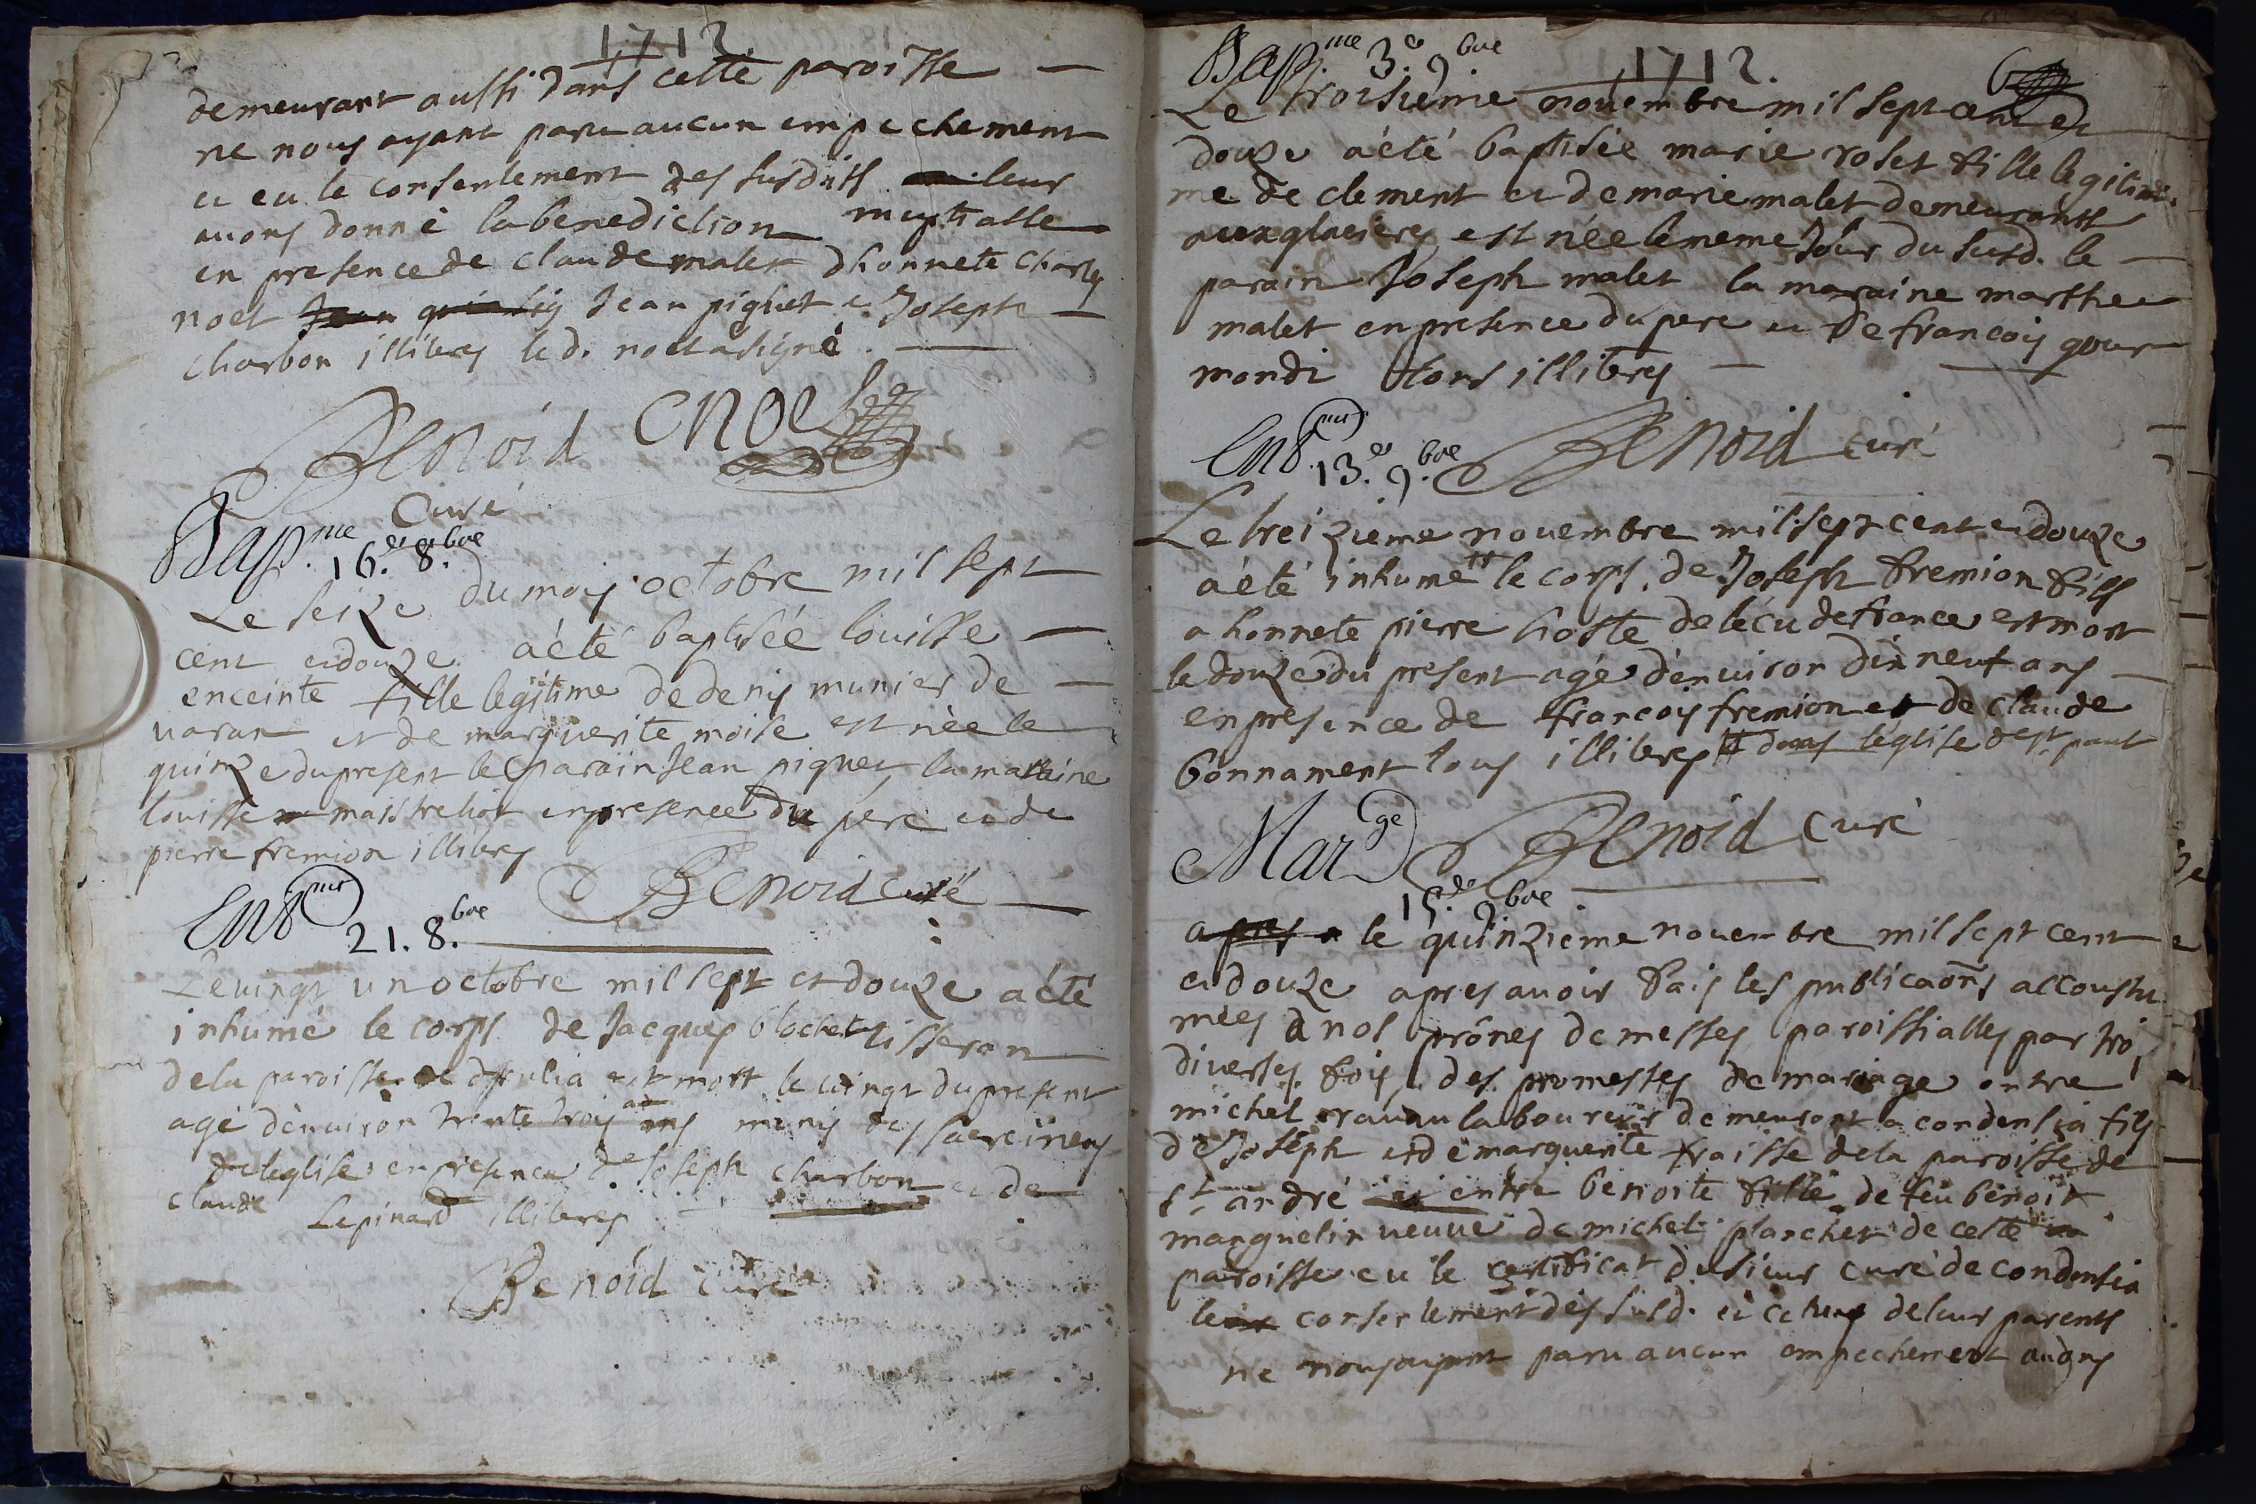 1712.
demeurant aussi dans cette paroisse
ne nous ayant paru aucun empechement
et eu le consentement des susdits leur
avons donné la benediction nuptialle
en presence de claude malet dhonnete Charles
noel Jean piquet et Joseph
charbon illiteres led. noel a signé.
Benoid CNoel
Curé
Bap.me 16.e 8.bre
Le seize du mois octobre mil sept
cent et douze a été baptisée louisse
enceinte fille legitime de denis munier de
varan et de marguerite moise est née le
quinze du present le parain Jean piquet la maraine
louisse en presence du pere et de
pierre fremion illiteres
Benoid curé
Ent.mt
21. 8.bre
Le vingt un octobre mil sept et douze a été
inhumé le corps de Jacques blochet tisseran
de la paroisse est mort le vingt du present
agé denviron trente trois ans munis des
de leglise en presence de Joseph charbon et de
claude Lepinard illiteres
Benoid Curé
Bap.me 3.e 9.bre
1712.
Le troisieme novembre mil sept cent et
douze a été baptisée marie roset fille legitimi.
me de clement et de marie malet demeurants
aux glacieres est née le meme Jour du susd. le
parain Joseph malet la maraine marthe
malet en presence du pere et de francois gour
mondi tous illiteres
Ent.mt 13.e 9.bre
Benoid curé
Le treizieme novembre mil sept cent et douze
a été inhumé le corps de Joseph fremion fils
a honnete pierre hoste de lécu de france est mort
le douze du present agé denviron dix neuf ans
en presence de francois fremion et de claude
bonnament tous illiteres dans leglise de st. paul
Mar.ge
Benoid Curé
15.e 9.bre
apres le quinzieme novembre mil sept cent
et douze apres avoir fais les publicaons accoustu
mées a nos prônes de messes paroissialles par troi
diverses fois des promesses de mariage entre
michel ravau laboureur demeurant a condensia fils
de Joseph et de marguerite fraisse de la paroisse de
st. andré entre benoite fille de feu benoit
manguelin veuve de michel planchet de cette
paroisse eu le certificat du sieur curé de condensia
le consentement des susd. et celuy de leur parents
ne nous ayant paru aucun empechement avons